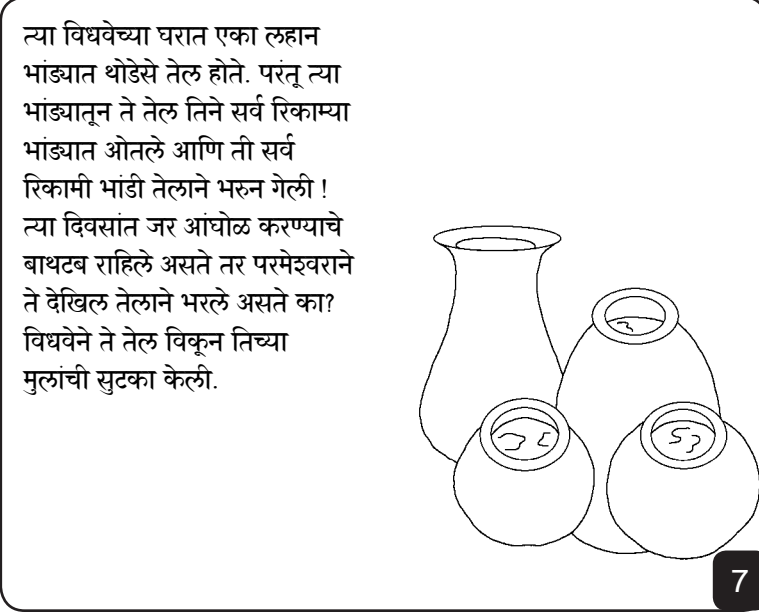 त्या विधवेच्या घरात एका लहान
भांड्यात थोडेसे तेल होते. परंतू त्या
भांड्यातून ते तेल तिने सर्व रिकाम्या
भांड्यात ओतले आणि ती सर्व
रिकामी भांडी तेलाने भरुन गेली !
त्या दिवसांत जर आंघोळ करण्याचे
बाथटब राहिले असते तर परमेश्वराने
ते देखिल तेलाने भरले असते का?
विधवेने ते तेल विकून तिच्या
मुलांची सुटका केली.
7